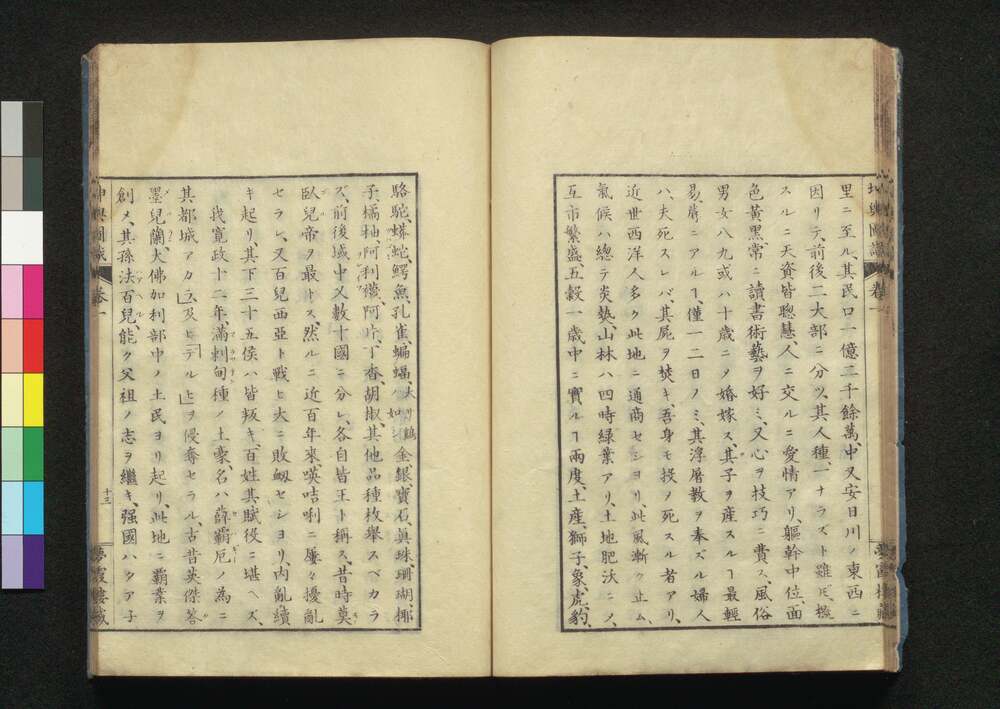 里ニ至ル、其民口一億二千餘萬、中又安日川ノ東西ニ
因リテ、前後二大部ニ分ツ、其人種、一ナラスト雖𪜈、概
スルニ天資皆聰慧人ニ交ルニ愛情アリ、軀幹中位、面
色黄黒、常ニ讀書術藝ヲ好ミ、又心ヲ技巧ニ費ス、風俗
男女八九或ハ十歳ニメ婚嫁ス、其子ヲ産スルヿ最輕
易、蓐ニアルヿ、僅一二日ノミ、其浮屠教ヲ奉ズル婦人
ハ、夫死スレバ、其屍ヲ焚キ、吾身モ投メ死スル者アリ、
近世西洋人多ク此地ニ通商セシヨリ、此風漸ク止ム、
氣候ハ總テ炎熱、山林ハ四時緑葉アリ、土地肥沃ニメ、
互市繁盛、五穀一歳中ニ實ルヿ兩度、土産、獅子、象、虎、豹、
駱駝、蟒蛇、鰐魚、孔雀、蝙蝠、大サ鶴ノ如シ金銀、寶石、眞珠、珊瑚、揶
子、橘柚、阿利襪、阿片、丁香、胡椒、其他品種枚擧スベカラ
ズ、前後域中又數十國ニ分レ、各自皆王ト稱ス、昔時莫
臥兒帝ヲ最トス、然ルニ近百年來、暎咭唎ニ屢々擾亂
セラレ、又百兒西亞ト戰ヒ大ニ敗衂セシヨリ、内亂續
キ起リ、其下三十五侯ハ皆叛キ、百姓其賦役ニ堪ヘズ、
我寛政十二年、滿剌甸種ノ土豪、名ハ薛霸厄ノ為ニ
其都城アカラ及ヒデルヒヲ侵奪セラル、古昔英傑答
墨兒蘭、大佛加利部中ノ土民ヨリ起リ、此地ニ覇業ヲ
創メ、其孫法百兒、能ク父祖ノ志ヲ繼キ、强國ハタア子
坤輿圖識
卷一
十三
夢霞樓藏